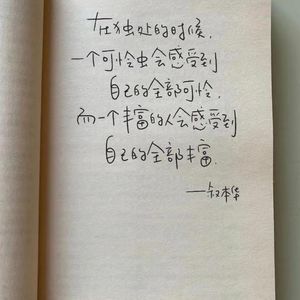 在独处的时候,
一个可怜虫会感受到
自己的全部可怜,
而一个丰富的人会感受到
自己的全部丰富.
——叔本华